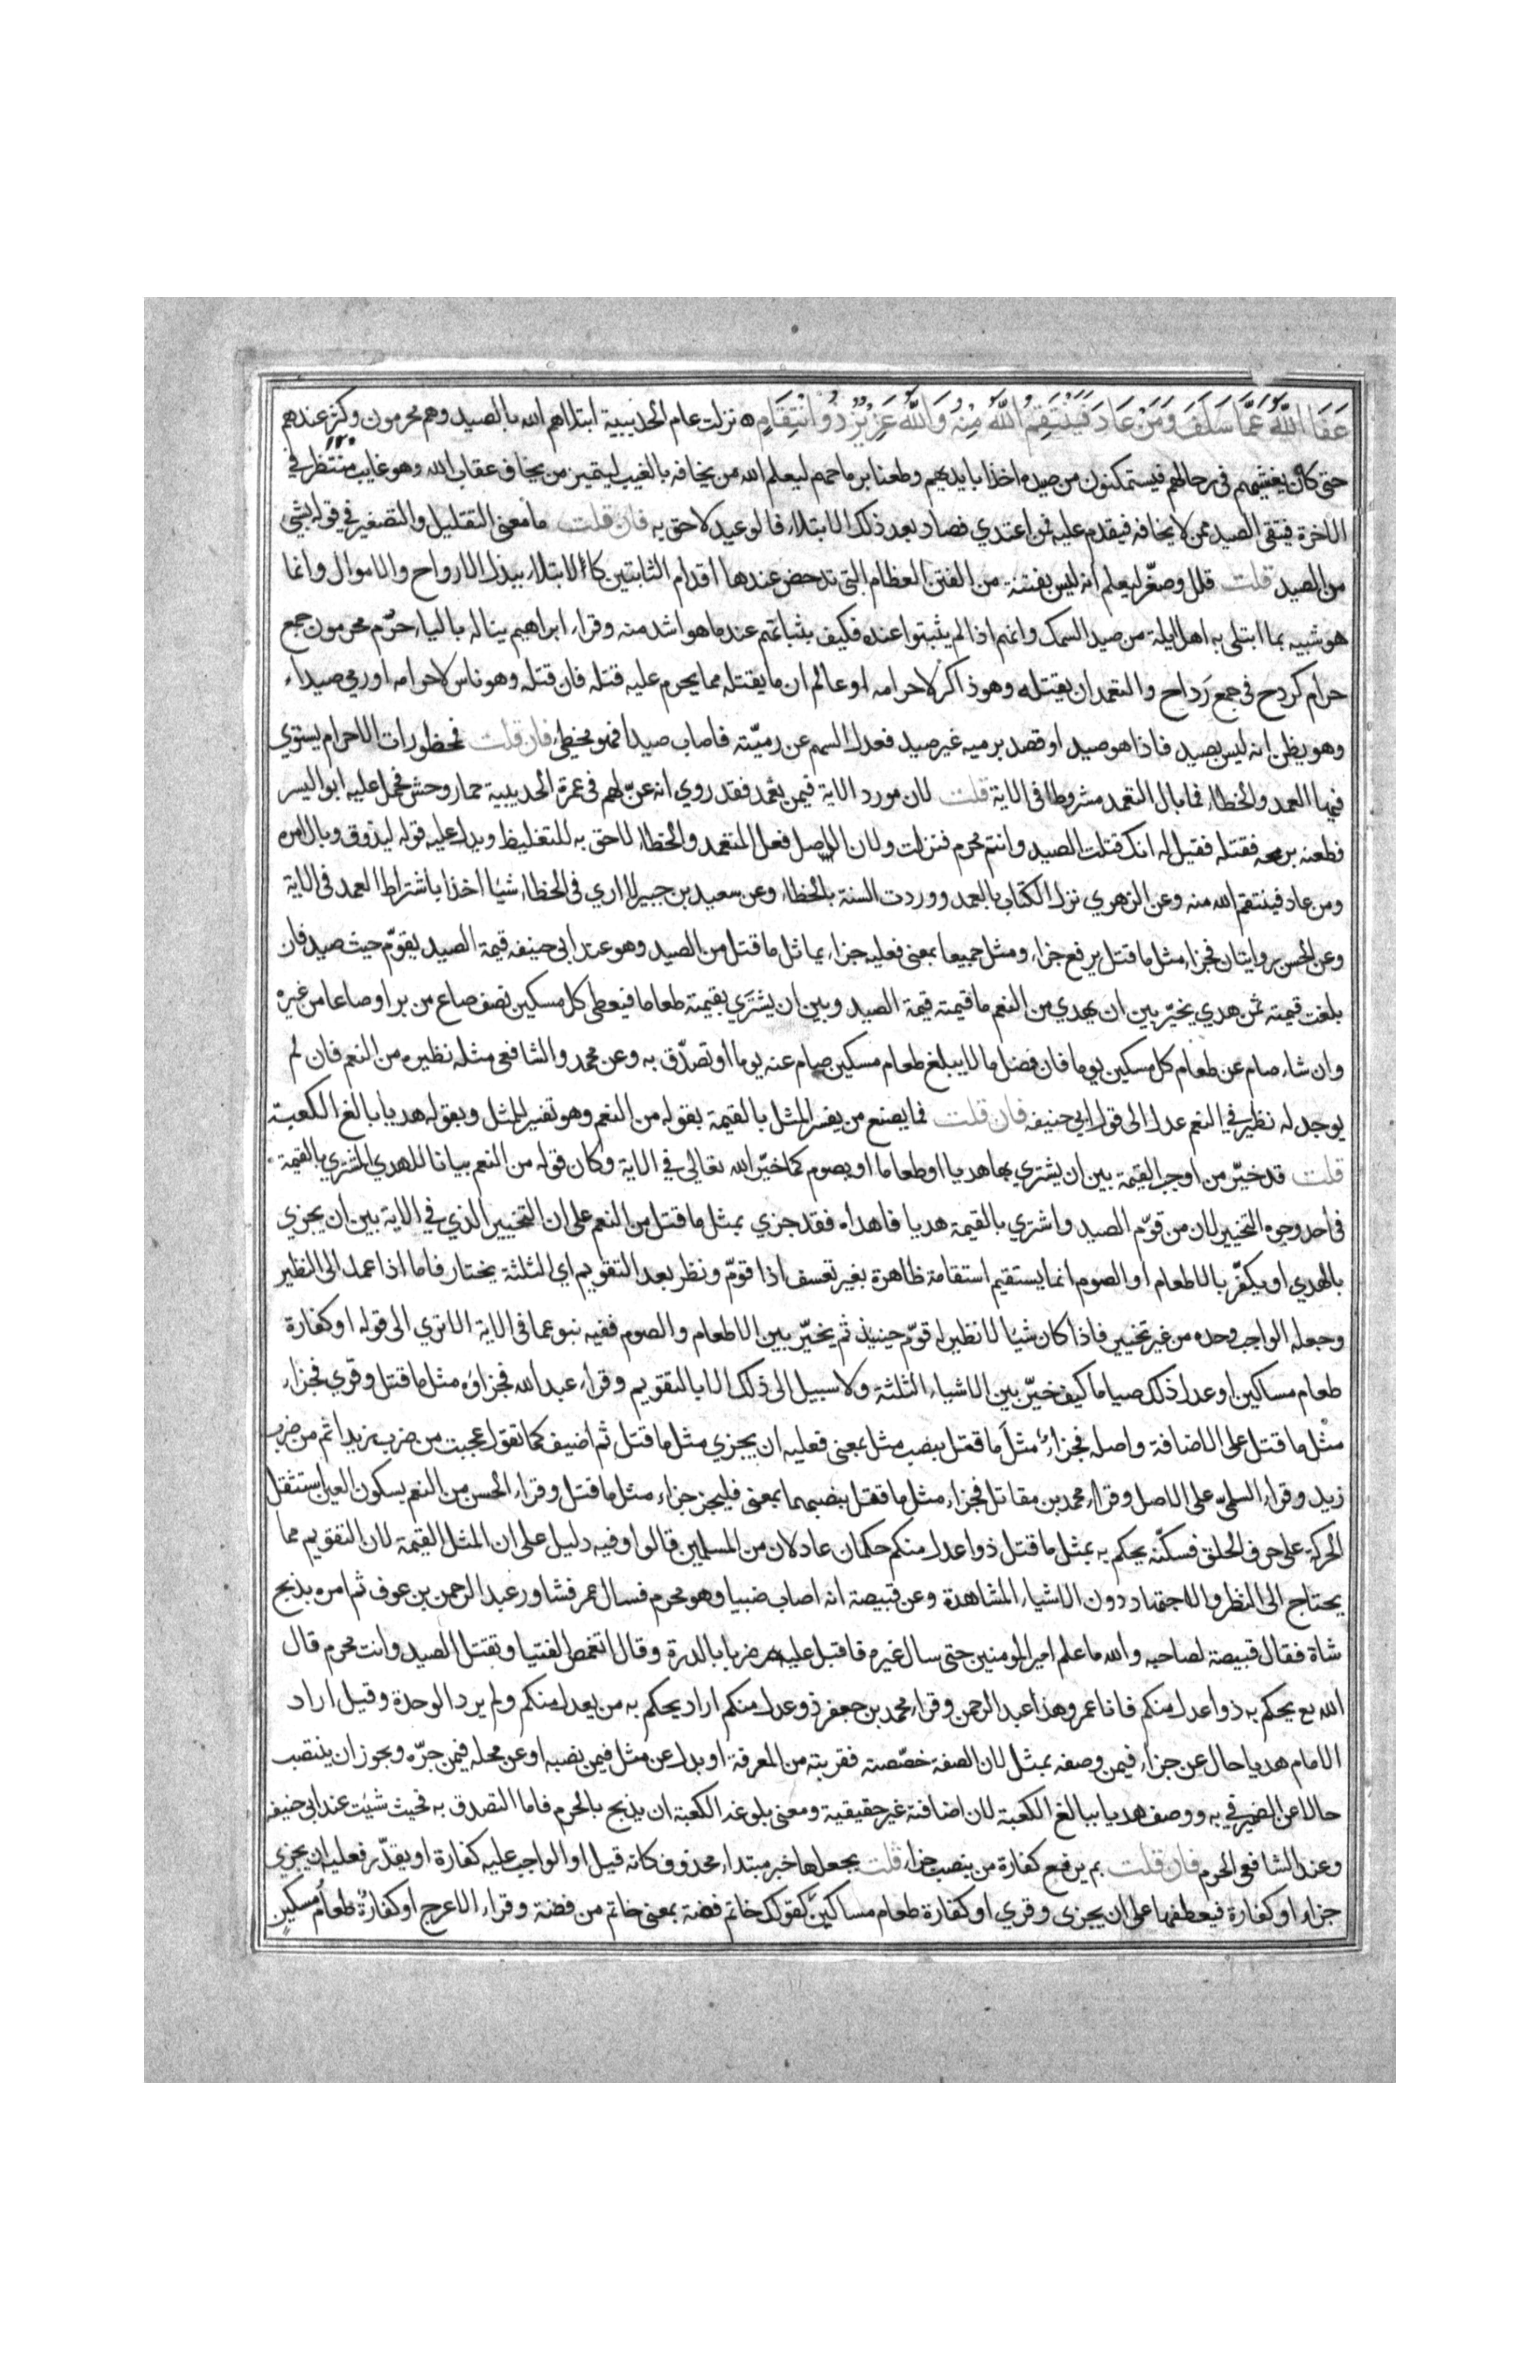 عَفَا اللَّهُ عَمَّا سَلَفَ وَمَنْ عَادَ فَيَنْتَقِمُ اللَّهُ مِنْهُ وَاللَّهُ عَزِيزٌ ذُو انْتِقَامٍ ه نزلت عام الحديبية ابتلاهم الله بالصيد وهم محرمون وكثر عندهم
حتى كان يغشيهم فى رحالهم فيستمكنون من صيده اخذا بايديهم وطعنا برماحهم ليعلم الله من يخافه بالغيب ليتميز من يخاف عقاب الله وهو غايب منتظر في
الاخرة فيتقى الصيد ممن لا يخافه فيقدم عليه فمن اعتدي فصاد بعد ذلك الابتلاء فالوعيد لاحق به فان قلت ما معنى التقليل والتصغير في قوله بشي
من الصيد قلت قلل وصغّر ليعلم انه ليس بفتنة من الفتن العظام التى تدحض عندها اقدام الثابتين كالابتلاء ببذل الارواح والاموال وانما
هو شبيه بما ابتلى به اهل ايلة من صيد السمك وانهم اذا لم يثبتوا عنده فكيف بثباتهم عند ما هو اشد منه وقراء ابراهيم يناله بالياء حرُم محرمون جمع
حرام كردح فى جمع رَداح والتعمد ان يقتله وهو ذاكر لاحرامه او عالم ان ما يقتله مما يحرم عليه قتله فان قتله وهو ناس لاحرامه او رمى صيداء
وهو يظن انه ليس بصيد فاذا هو صيد او قصد برميه غير صيد فعدل السهم عن رميّته فاصاب صيدا فهو مخطئ فان قلت فمحظورات الاحرام يستوي
فيها العمد والخطاء فما بال التعمد مشروطا فى الاية قلت لان مورد الاية فيمن تعمد فقد روي انه عنّ لهم فى عمرة الحديبية حمار وحش فحمل عليه ابو اليسر
فطعنه برمحه فقتله فقيل له انك قتلت الصيد وانتم محرم فنزلت ولان الاصل فعل المتعمد والخطاء لاحق به للتغليظ ويدل عليه قوله ليذوق وبال امره
ومن عاد فينتقم الله منه وعن الزهري نزل الكتاب بالعمد ووردت السنة بالخطاء وعن سعيد بن جبير لا اري فى الخطاء شيا اخذا باشتراط العمد فى الاية
وعن الحسن روايتان فجزاء مثل ما قتل برفع جزاء ومثل جميعا بمعنى فعليه جزاء يماثل ما قتل من الصيد وهو عند ابى حنيفه قيمة الصيد يقوّم حيث صيد فان
بلغت قيمته ثمن هدي يخيّر بين ان يهدي من النعم ما قيمته قيمة الصيد وبين ان يشتَري بقيمته طعاما فيعطى كل مسكين نصف صاع من بر او صاعا من غيره
وان شاء صام عن طعام كل مسكين يوما فان فضل ما لا يبلغ طعام مسكين صام عنه يوما او تصدّق به وعن محمد والشافعى مثله نظيره من النعم فان لم
يوجد له نظير في النعم عدل الى قول ابي حنيفه فان قلت فما يصنع من يفسر المثل بالقيمة بقوله من النعم وهو تفسير للمثل وبقوله هديا بالغ الكعبة
قلت قد خيّر من اوجب القيمة بين ان يشتري بها هديا او طعاما او يصوم كما خيّر الله تعالى في الاية وكان قوله من النعم بيانا للهدي المشتري بالقيمة
فى احد وجوه التخيير لان من قوّم الصيد واشتري بالقيمة هديا فاهداه فقد جزي بمثل ما قتل من النعم على ان التخيير الذي في الاية بين ان يجزي
بالهدي او يكفّر بالاطعام او الصوم انما يستقيم استقامة ظاهرة بغير تعسف اذا قوّم ونظر بعد التقويم اي الثلثة يختار فاما اذا عمد الى النظير
وجعله الواجب وحده من غير تخيير فاذا كان شيا لا نظير له قوّم حينيذ ثم يخيّر بين الاطعام والصوم ففيه نبو عما فى الاية الا تري الى قوله او كفارة
طعام مساكين او عدل ذلك صياما كيف خيّر بين الاشياء الثلثة ولا سبيل الى ذلك الا بالتقويم وقراء عبد الله فجزاؤه مثل ما قتل وقري فجزاء
مثْل ما قتل على الاضافة واصله فجزاءٌ مثلَ ما قتل بنصب مثل بمعنى فعليه ان يجزي مثل ما قتل ثم اضيف كما تقول عجبت من ضرب زيدا ثم من ضرب
زيد وقراء السلمىّ على الاصل وقراء محمد بن مقاتل فجزاء مثل ما قتل بنصبهما بمعنى فليجز جزاء مثل ما قتل وقراء الحسن من النعم بسكون العين استثقل
الحركة على حرف الحلق فسكّنه يحكم به بمثل ما قتل ذوا عدل منكم حكمان عادلان من المسلمين قالوا وفيه دليل على ان المثل القيمة لان التقويم مما
يحتاج الى النظر والاجتهاد دون الاشياء المشاهدة وعن قبيصة انه اصاب ضبيا وهو محرم فسال عمر فشاور عبد الرحمن بن عوف ثم امره بذبح
شاة فقال قبيصة لصاحبه والله ما علم امير المومنين حتى سال غيره فاقبل عليه ضربا بالدرة وقال اتغمص الفتيا وتقتل الصيد وانت محرم قال
الله تع يحكم به ذوا عدل منكم فانا عمر وهذا عبد الرحمن وقراء محمد بن جعفر ذو عدل منكم اراد يحكم به من يعدل منكم ولم يرد الوحدة وقيل اراد
الامام هديا حال عن جزاء فيمن وصفه بمثل لان الصفة خصّصته فقربته من المعرفة او بدل عن مثل فيمن نصبه او عن محله فيمن جرّه ويجوز ان ينتصب
حالا عن الضمير في به ووصف هديا ببالغ الكعبة لان اضافته غير حقيقية ومعنى بلوغه الكعبة ان يذبح بالحرم فاما التصدق به فحيث شيت عند ابى حنيفه
وعند الشافعى الحرم فان قلت بم يرفع كفارة من ينصب جزاء قلت يجعلها خبر مبتداء محذوف كانه قيل او الواجب عليه كفارة او يقدّر فعليه ان يجزى
جزاء او كفارة فيعطفها على ان يجزى وقري او كفارة طعام مساكين كقولك خاتم فضة بمعنى خاتم من فضة وقراء الاعرج او كفارةٌ طعامُ مسكينٍ